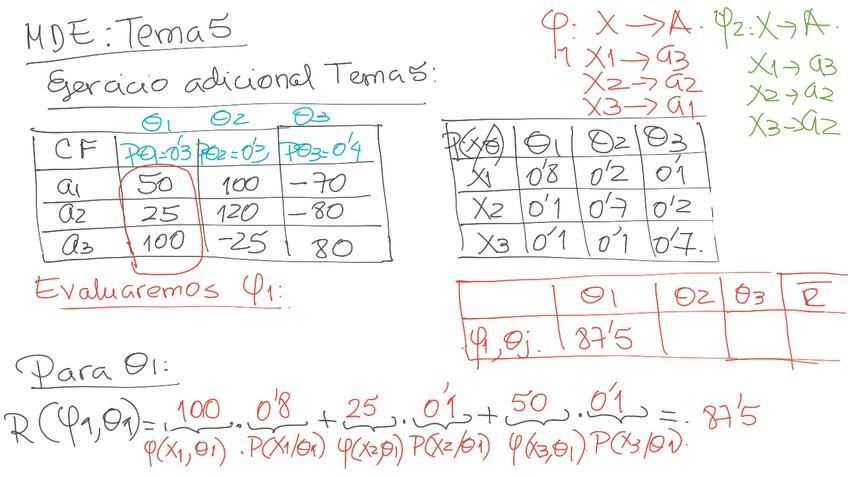 MDE: Tema 5
Ejercicio adicional Tema 5:
φ1: X → A.
X1 → a3
X2 → a2
X3 → a1
φ2: X → A.
X1 → a3
X2 → a2
X3 → a2
θ1 θ2 θ3
CF Pθ1=0'3 Pθ2=0'3 Pθ3=0'4
a1 50 100 -70
a2 25 120 -80
a3 100 -25 80
P(X/θ) θ1 θ2 θ3
X1 0'8 0'2 0'1
X2 0'1 0'7 0'2
X3 0'1 0'1 0'7.
Evaluaremos φ1:
θ1 θ2 θ3 R̅
φ1, θj. 87'5
Para θ1:
R(φ1,θ1) = 100 · 0'8 + 25 · 0'1 + 50 · 0'1 = 87'5
φ(X1,θ1) · P(X1/θ1) φ(X2,θ1) P(X2/θ1) φ(X3,θ1) P(X3/θ1).